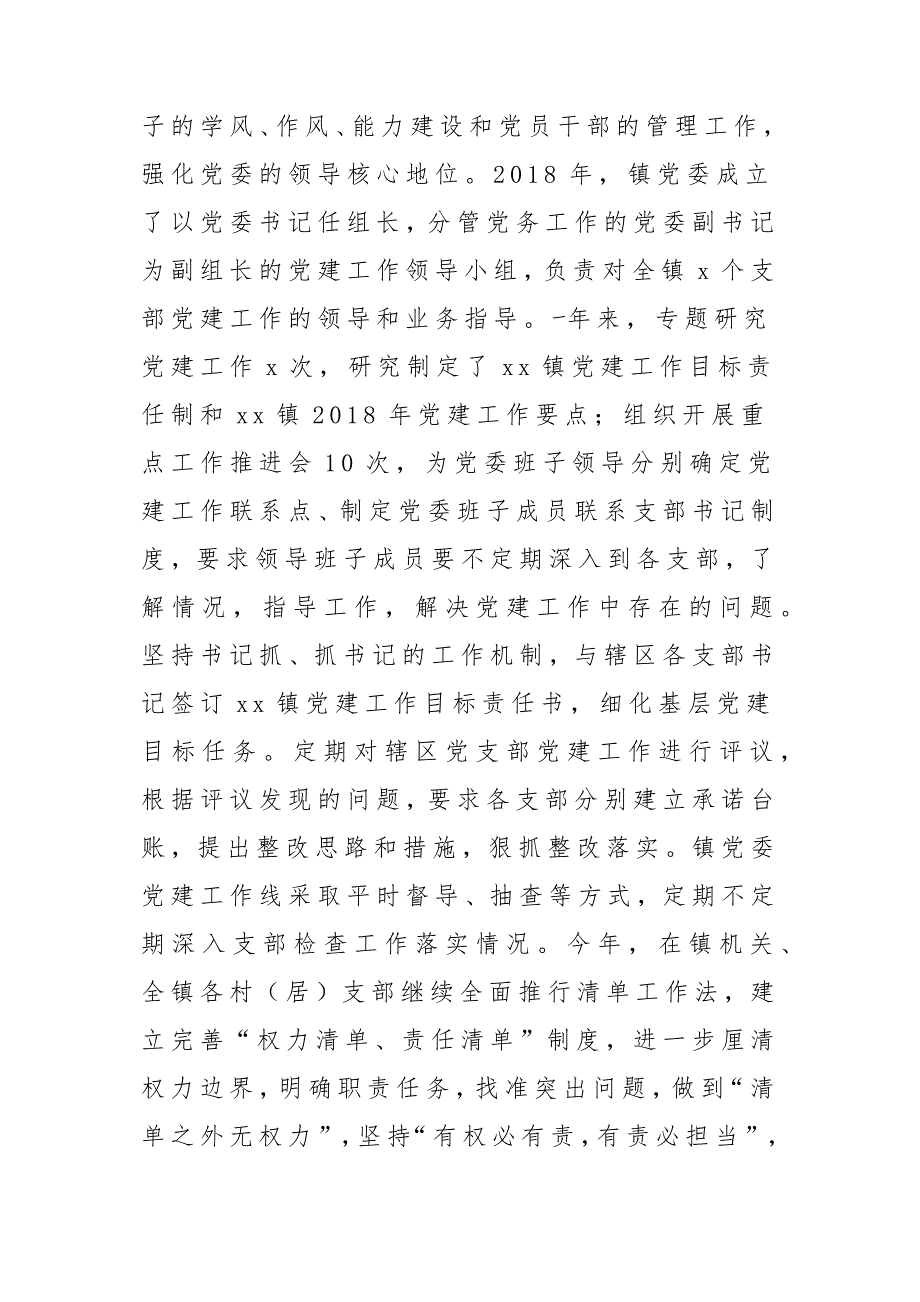 子的学风、作风、能力建设和党员干部的管理工作，
强化党委的领导核心地位。2018 年，镇党委成立
了以党委书记任组长，分管党务工作的党委副书记
为副组长的党建工作领导小组，负责对全镇 x 个支
部党建工作的领导和业务指导。-年来，专题研究
党建工作 x 次，研究制定了 xx 镇党建工作目标责
任制和 xx 镇 2018 年党建工作要点；组织开展重
点工作推进会 10 次，为党委班子领导分别确定党
建工作联系点、制定党委班子成员联系支部书记制
度，要求领导班子成员要不定期深入到各支部，了
解情况，指导工作，解决党建工作中存在的问题。
坚持书记抓、抓书记的工作机制，与辖区各支部书
记签订 xx 镇党建工作目标责任书，细化基层党建
目标任务。定期对辖区党支部党建工作进行评议，
根据评议发现的问题，要求各支部分别建立承诺台
账，提出整改思路和措施，狠抓整改落实。镇党委
党建工作线采取平时督导、抽查等方式，定期不定
期深入支部检查工作落实情况。今年，在镇机关、
全镇各村（居）支部继续全面推行清单工作法，建
立完善“权力清单、责任清单”制度，进一步厘清
权力边界，明确职责任务，找准突出问题，做到“清
单之外无权力”，坚持“有权必有责，有责必担当”，